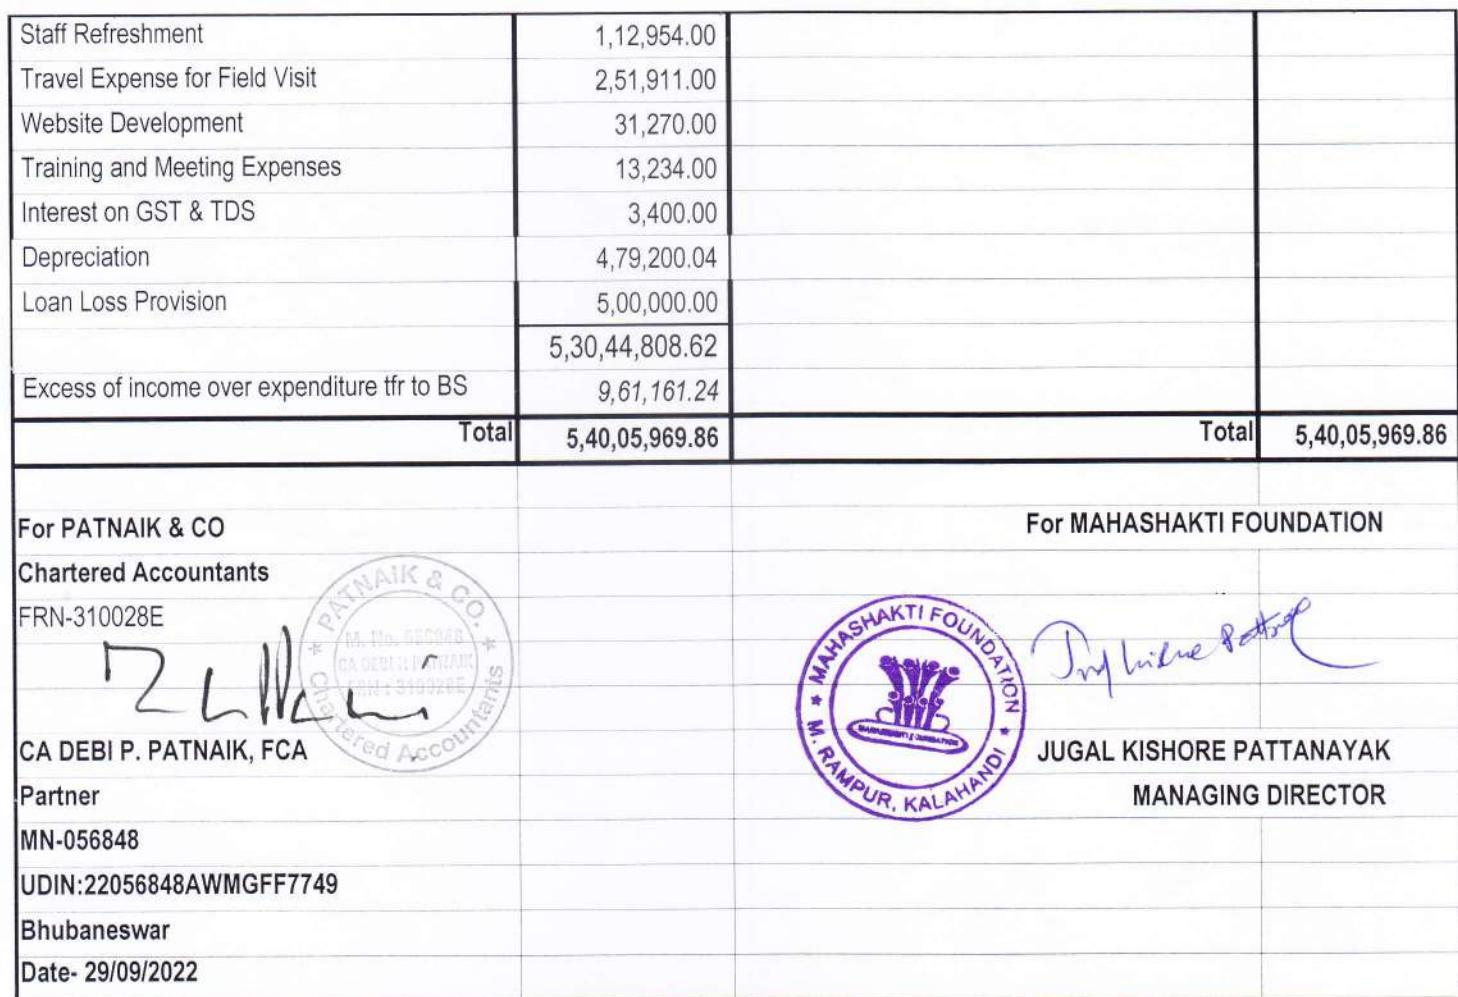 Staff Refreshment 1,12,954.00
Travel Expense for Field Visit 2,51,911.00
Website Development 31,270.00
Training and Meeting Expenses 13,234.00
Interest on GST & TDS 3,400.00
Depreciation 4,79,200.04
Loan Loss Provision 5,00,000.00
5,30,44,808.62
Excess of income over expenditure tfr to BS 9,61,161.24
Total 5,40,05,969.86 Total 5,40,05,969.86
For PATNAIK & CO
Chartered Accountants
FRN-310028E
PATNAIK & CO.
M. No. 056848
CA DEBI P. PATNAIK
FRN : 310028E
Chartered Accountants
CA DEBI P. PATNAIK, FCA
Partner
MN-056848
UDIN:22056848AWMGFF7749
Bhubaneswar
Date- 29/09/2022
For MAHASHAKTI FOUNDATION
MAHASHAKTI FOUNDATION
MAHASHAKTI FOUNDATION
M. RAMPUR, KALAHANDI
JUGAL KISHORE PATTANAYAK
MANAGING DIRECTOR